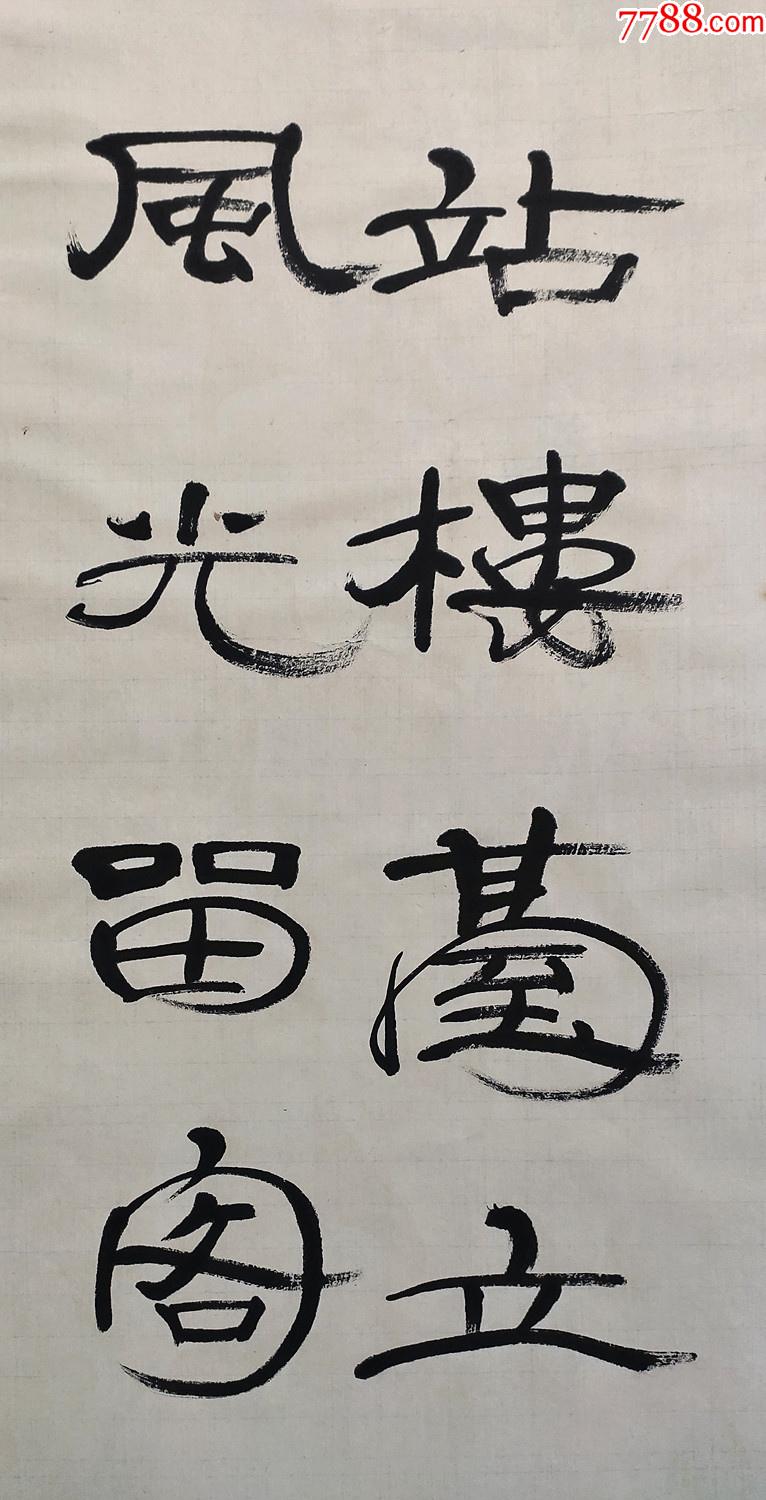 7788.com
站樓臺立
風光留客